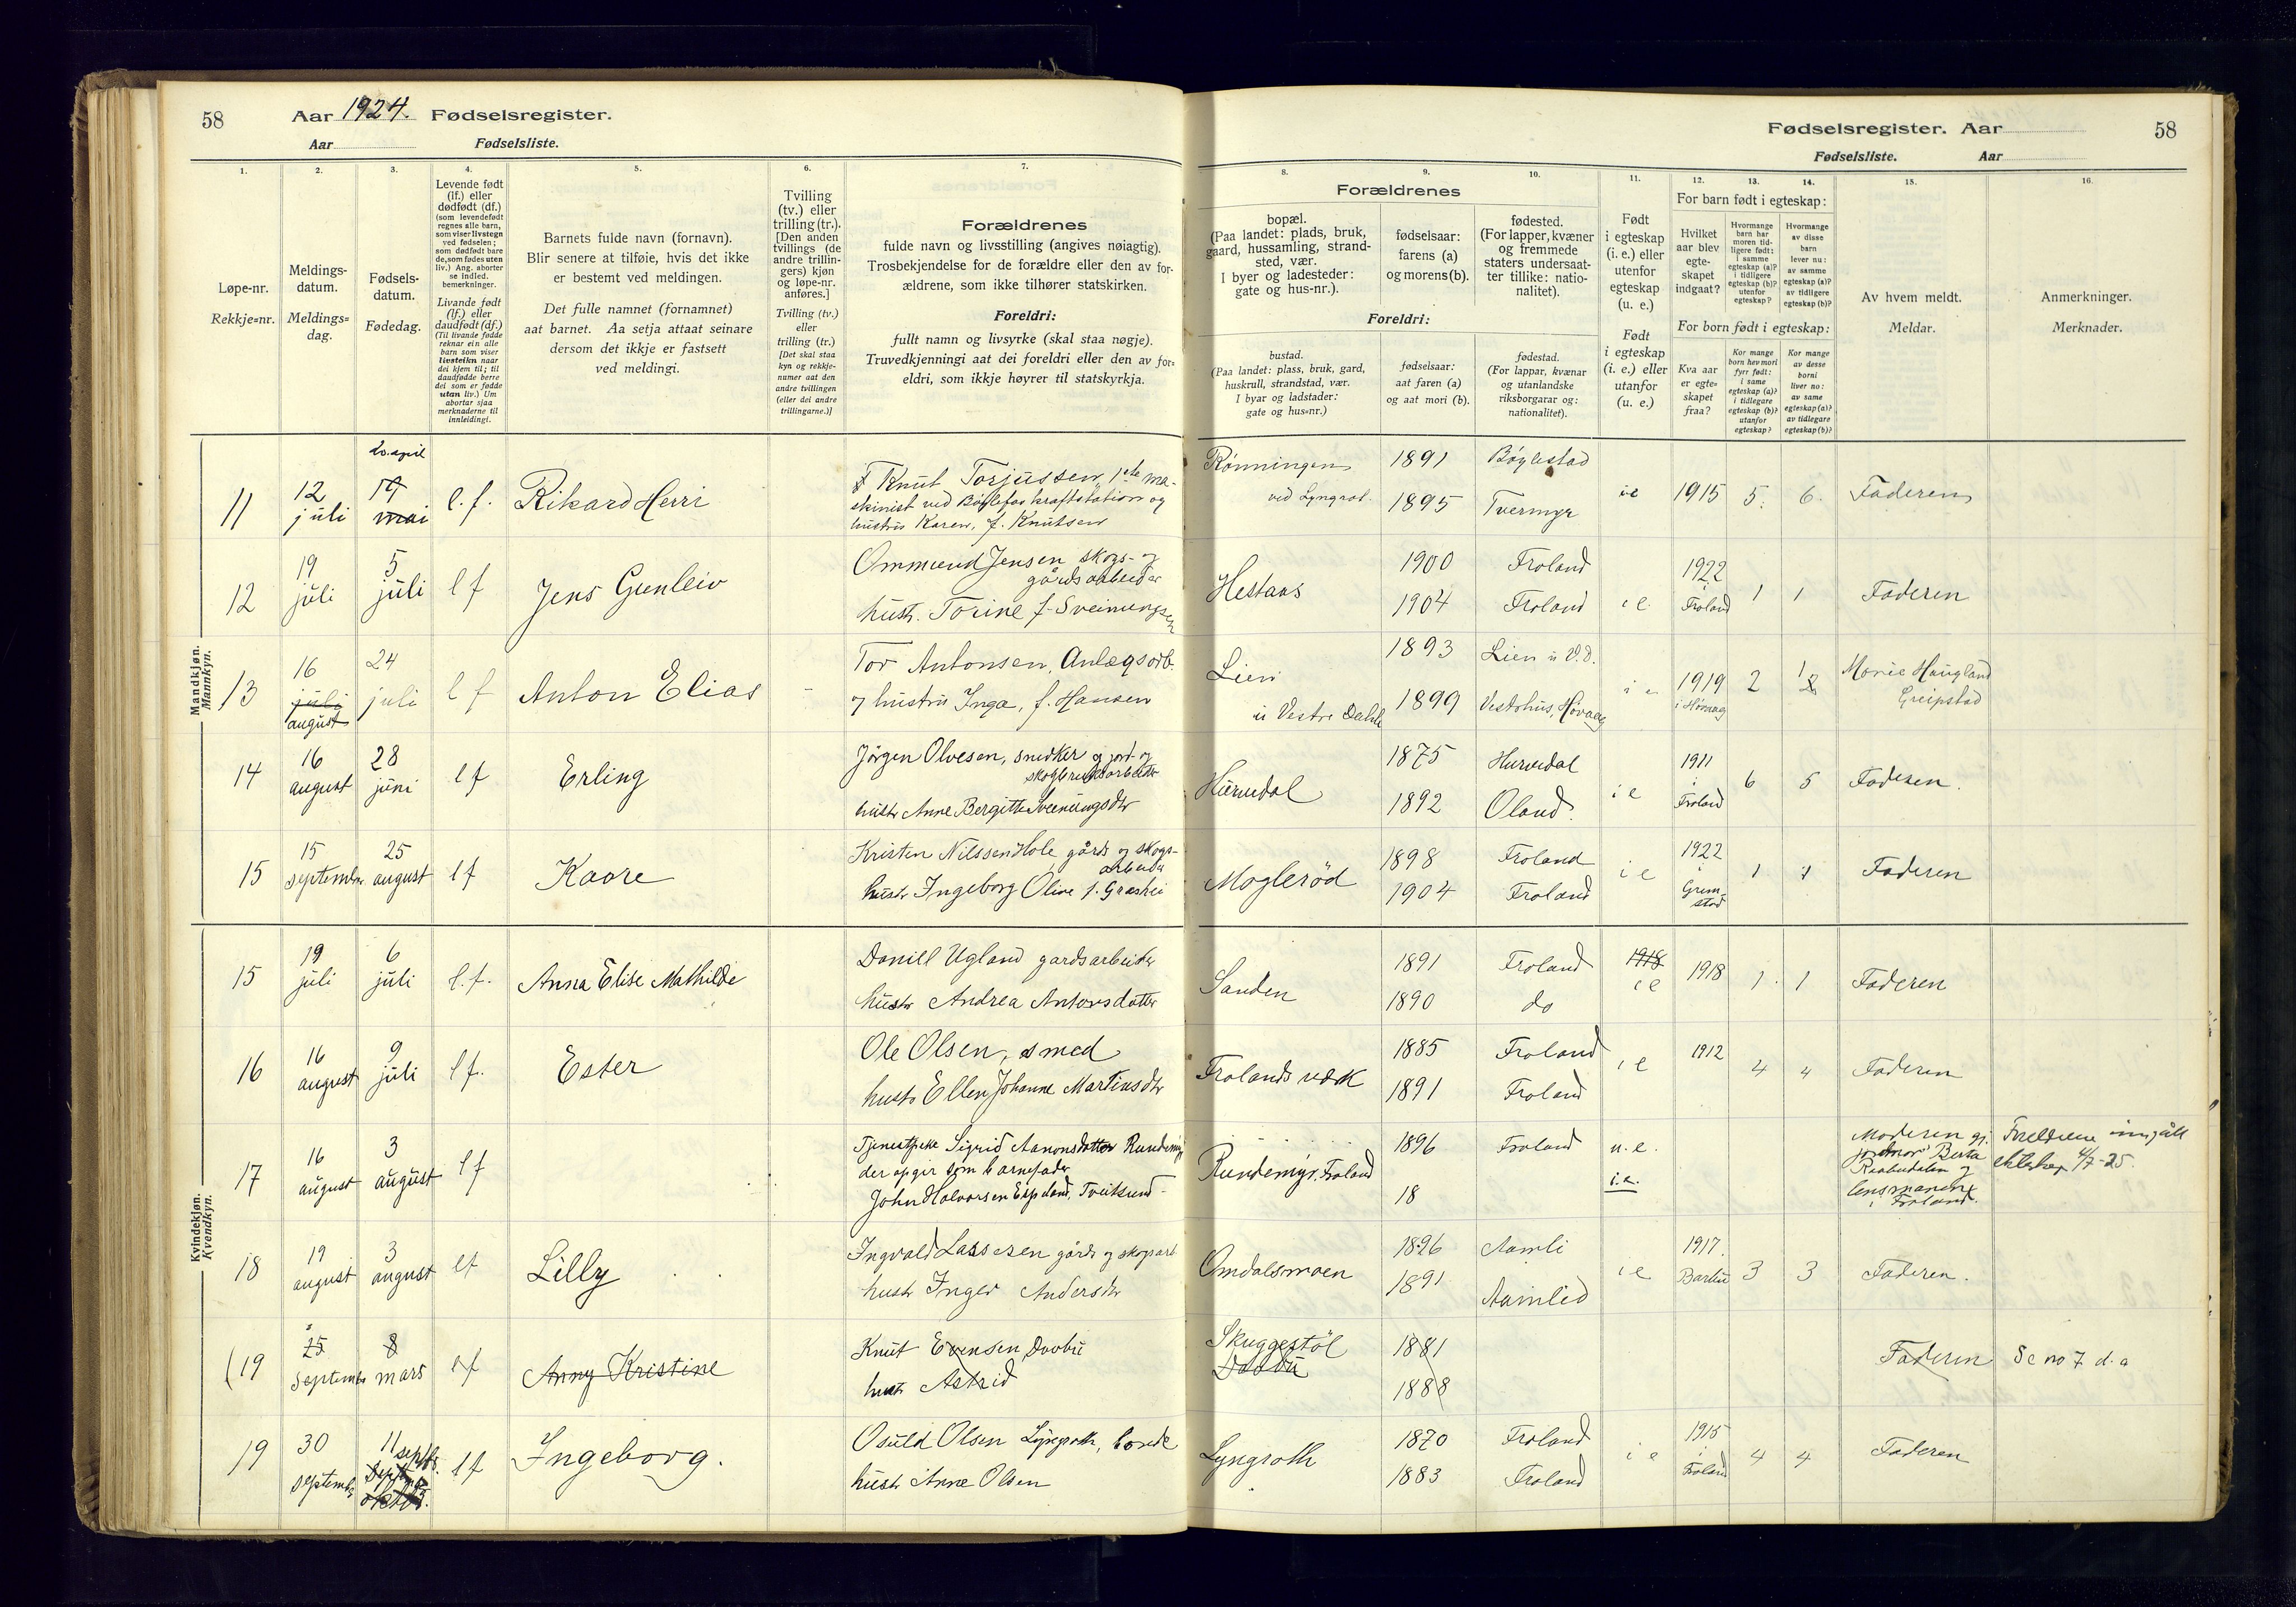 58
Aar 1924. Fødselsregister.
Aar Fødselsliste.
1.
2.
3.
4.
5.
6.
7.
Løpe-nr.
Rekkje=nr.
Meldings-
datum.
Meldings=
dag.
Fødsels-
datum.
Fødedag.
Levende født
(lf.) eller
dødfødt (df.)
(som levendefødt
regnes alle barn,
som viser livstegn
ved fødselen;
som dødfødt bare
de, som fødes uten
liv.) Ang. aborter
se indled.
bemerkninger.
Livande født
(lf.) eller
daudfødt (df.)
(Til livande fødde
reknar ein alle
barn som viser
livsteikn naar
dei kjem til; til
daudfødde berre
dei som er fødde
utan liv.) Um
abortar sjaa
merknaderne til
innleidingi.
Barnets fulde navn (fornavn).
Blir senere at tilføie, hvis det ikke
er bestemt ved meldingen.
Det fulle namnet (fornamnet)
aat barnet. Aa setja attaat seinare
dersom det ikkje er fastsett
ved meldingi.
Tvilling
(tv.) eller
trilling (tr.).
[Den anden
tvillings (de
andre trillin-
gers) kjøn
og løpe-nr.
anføres.]
Tvilling (tv.)
eller
trilling (tr.)
[Det skal staa
kyn og rekkje-
numer aat den
andre tvillingen
(eller dei andre
trillingarne.)]
Forældrenes
fulde navn og livsstilling (angives nøiagtig).
Trosbekjendelse for de forældre eller den av for-
ældrene, som ikke tilhører statskirken.
Foreldri:
fullt namn og livsyrke (skal staa nøgje).
Truvedkjenningi aat dei foreldri eller den av for-
eldri, som ikkje høyrer til statskyrkja.
Mandkjøn.
Mannkyn.
11
12
juli
20. april
19
mai
l. f.
Rikard Herri
Knut Torjussen, 1ste ma-
skinist ved Bøylefos kraftstation og
hustru Karen, f. Knutsen
12
19
juli
5
juli
l f
Jens Gunleiv
Ommund Jensen skogs- og
gårdsarbeider
hustr. Torine f. Sveinungsen
13
16
juli
august
24
juli
l f
Anton Elias
Tor Antonsen, Anlegsarb.
og hustru Inga, f. Hansen
14
16
august
28
juni
l f
Erling
Jörgen Olvesen, snedker og jord og
skogbruksarbeider
hustr Anne Bergitte Sveinungsdtr
15
15
september
25
august
l f
Kaare
Kristen Nilssen Hole, gårds og skogs-
arbeider
hustr Ingeborg Olive f. Græshei
Kvindekjøn.
Kvendkyn.
15
19
juli
6
juli
l. f.
Anna Elise Mathilde
Daniel Ugland gardsarbeider
hustr Andrea Antonsdatter
16
16
august
9
juli
l f.
Ester
Ole Olsen, smed
hustr Ellen Johanne Martinsdtr
17
16
august
3
august
l f
Tjenestpike Sigrid Aanonsdatter Rundemyr
der opgir som barnefader
John Halvorsen Espeland, Tveitsund
18
19
august
3
august
l f
Lilly
Ingvald Lassesen gårds og skogsarb
hustr Inger Andersdtr
(19
25
september
8
mars
l f
Anny Kristine
Knut Evensen Dovbu
hustr Astrid
19
30
september
11 septbr.
l f
Ingeborg.
Osuld Olsen Lyngroth, bonde
hustr Anne Olsen
Fødselsregister. Aar
58
Fødselsliste. Aar
8.
9.
10.
11.
12.
13.
14.
15.
16.
Forældrenes
bopæl.
(Paa landet: plads, bruk,
gaard, hussamling, strand-
sted, vær.
I byer og ladesteder:
gate og hus-nr.).
fødselsaar:
farens (a)
og morens(b).
fødested.
(For lapper, kvæner
og fremmede
staters undersaat-
ter tillike: natio-
nalitet).
Foreldri:
bustad.
(Paa landet: plass, bruk, gard,
huskrull, strandstad, vær.
I byar og ladstader:
gate og hus=nr.)
fødselsaar:
aat faren (a)
og aat mori (b).
fødestad.
(For lappar, kvænar
og utanlandske
riksborgarar og:
nationalitet).
Født
i egteskap
(i. e.) eller
utenfor
egteskap
(u. e.)
Født
i egteskap
(i. e.) eller
utanfor
(u. e.)
For barn født i egteskap:
Hvilket
aar blev
egte-
skapet
indgaat?
Hvormange
barn har
moren tid-
ligere født:
i samme
egteskap (a)?
i tidligere
egteskap (b)?
utenfor
egteskap?
Hvormange
av disse
barn
lever nu:
av samme
egteskap (a)?
av tidligere
egteskap (b)?
For born født i egteskap:
Kva aar
er egte=
skapet
fraa?
Kor mange
born hev mori
fyrr født:
i same
egteskap (a)?
i tidlegare
egteskap (b)?
utanfor
egteskap?
Kor mange
av desse
borni
liver no:
av same
egteskap (a)?
av tidlegare
egteskap (b)?
Av hvem meldt.
Meldar.
Anmerkninger.
Merknader.
Rönningen
ved Lyngrot
1891
1895
Böylestad
Tvermyr
i e
1915
5.
6.
Faderen
Hestaas
1900
1904
Froland
Froland
i e.
1922
i
Froland
1
1
Faderen
Lien
i Vestre Dalen
1893
1899
Lien i V.d.
Vestrhus, Høvaag
i e
1919
i Høvaag
2
1
2
Marie Haugland
Greipstad
Hurvedal
1875
1892
Hurvedal
Oland.
i e
1911
i
Froland
6
5
Faderen.
Moglerød
1898
1904
Froland
Froland
i e
1922
i
Grim-
stad
1
1
Faderen
Sanden
1891
1890
Froland
do
1918
i e
1918
1.
1
Faderen
Frolands værk
1885
1891
Froland
Froland
i e
1912
4
4
Faderen
Rundemyr, Froland
1896
18
Froland
u. e.
i. e.
Moderen gj.
jordmor Berta
og
lensmannen
i Froland.
Foreldrene inngått
ekteskap 4/7-25.
Omdalsmoen
1896
1891
Aamli
Aamlid
i e
1917.
Barbu
3
3
Faderen.
Skuggestöl
Dovbu
1881
1888
Faderen
Se no 7 d. a
Lyngroth
1870
1883
Froland
Froland
i e
1915
i
Froland
4
4
Faderen